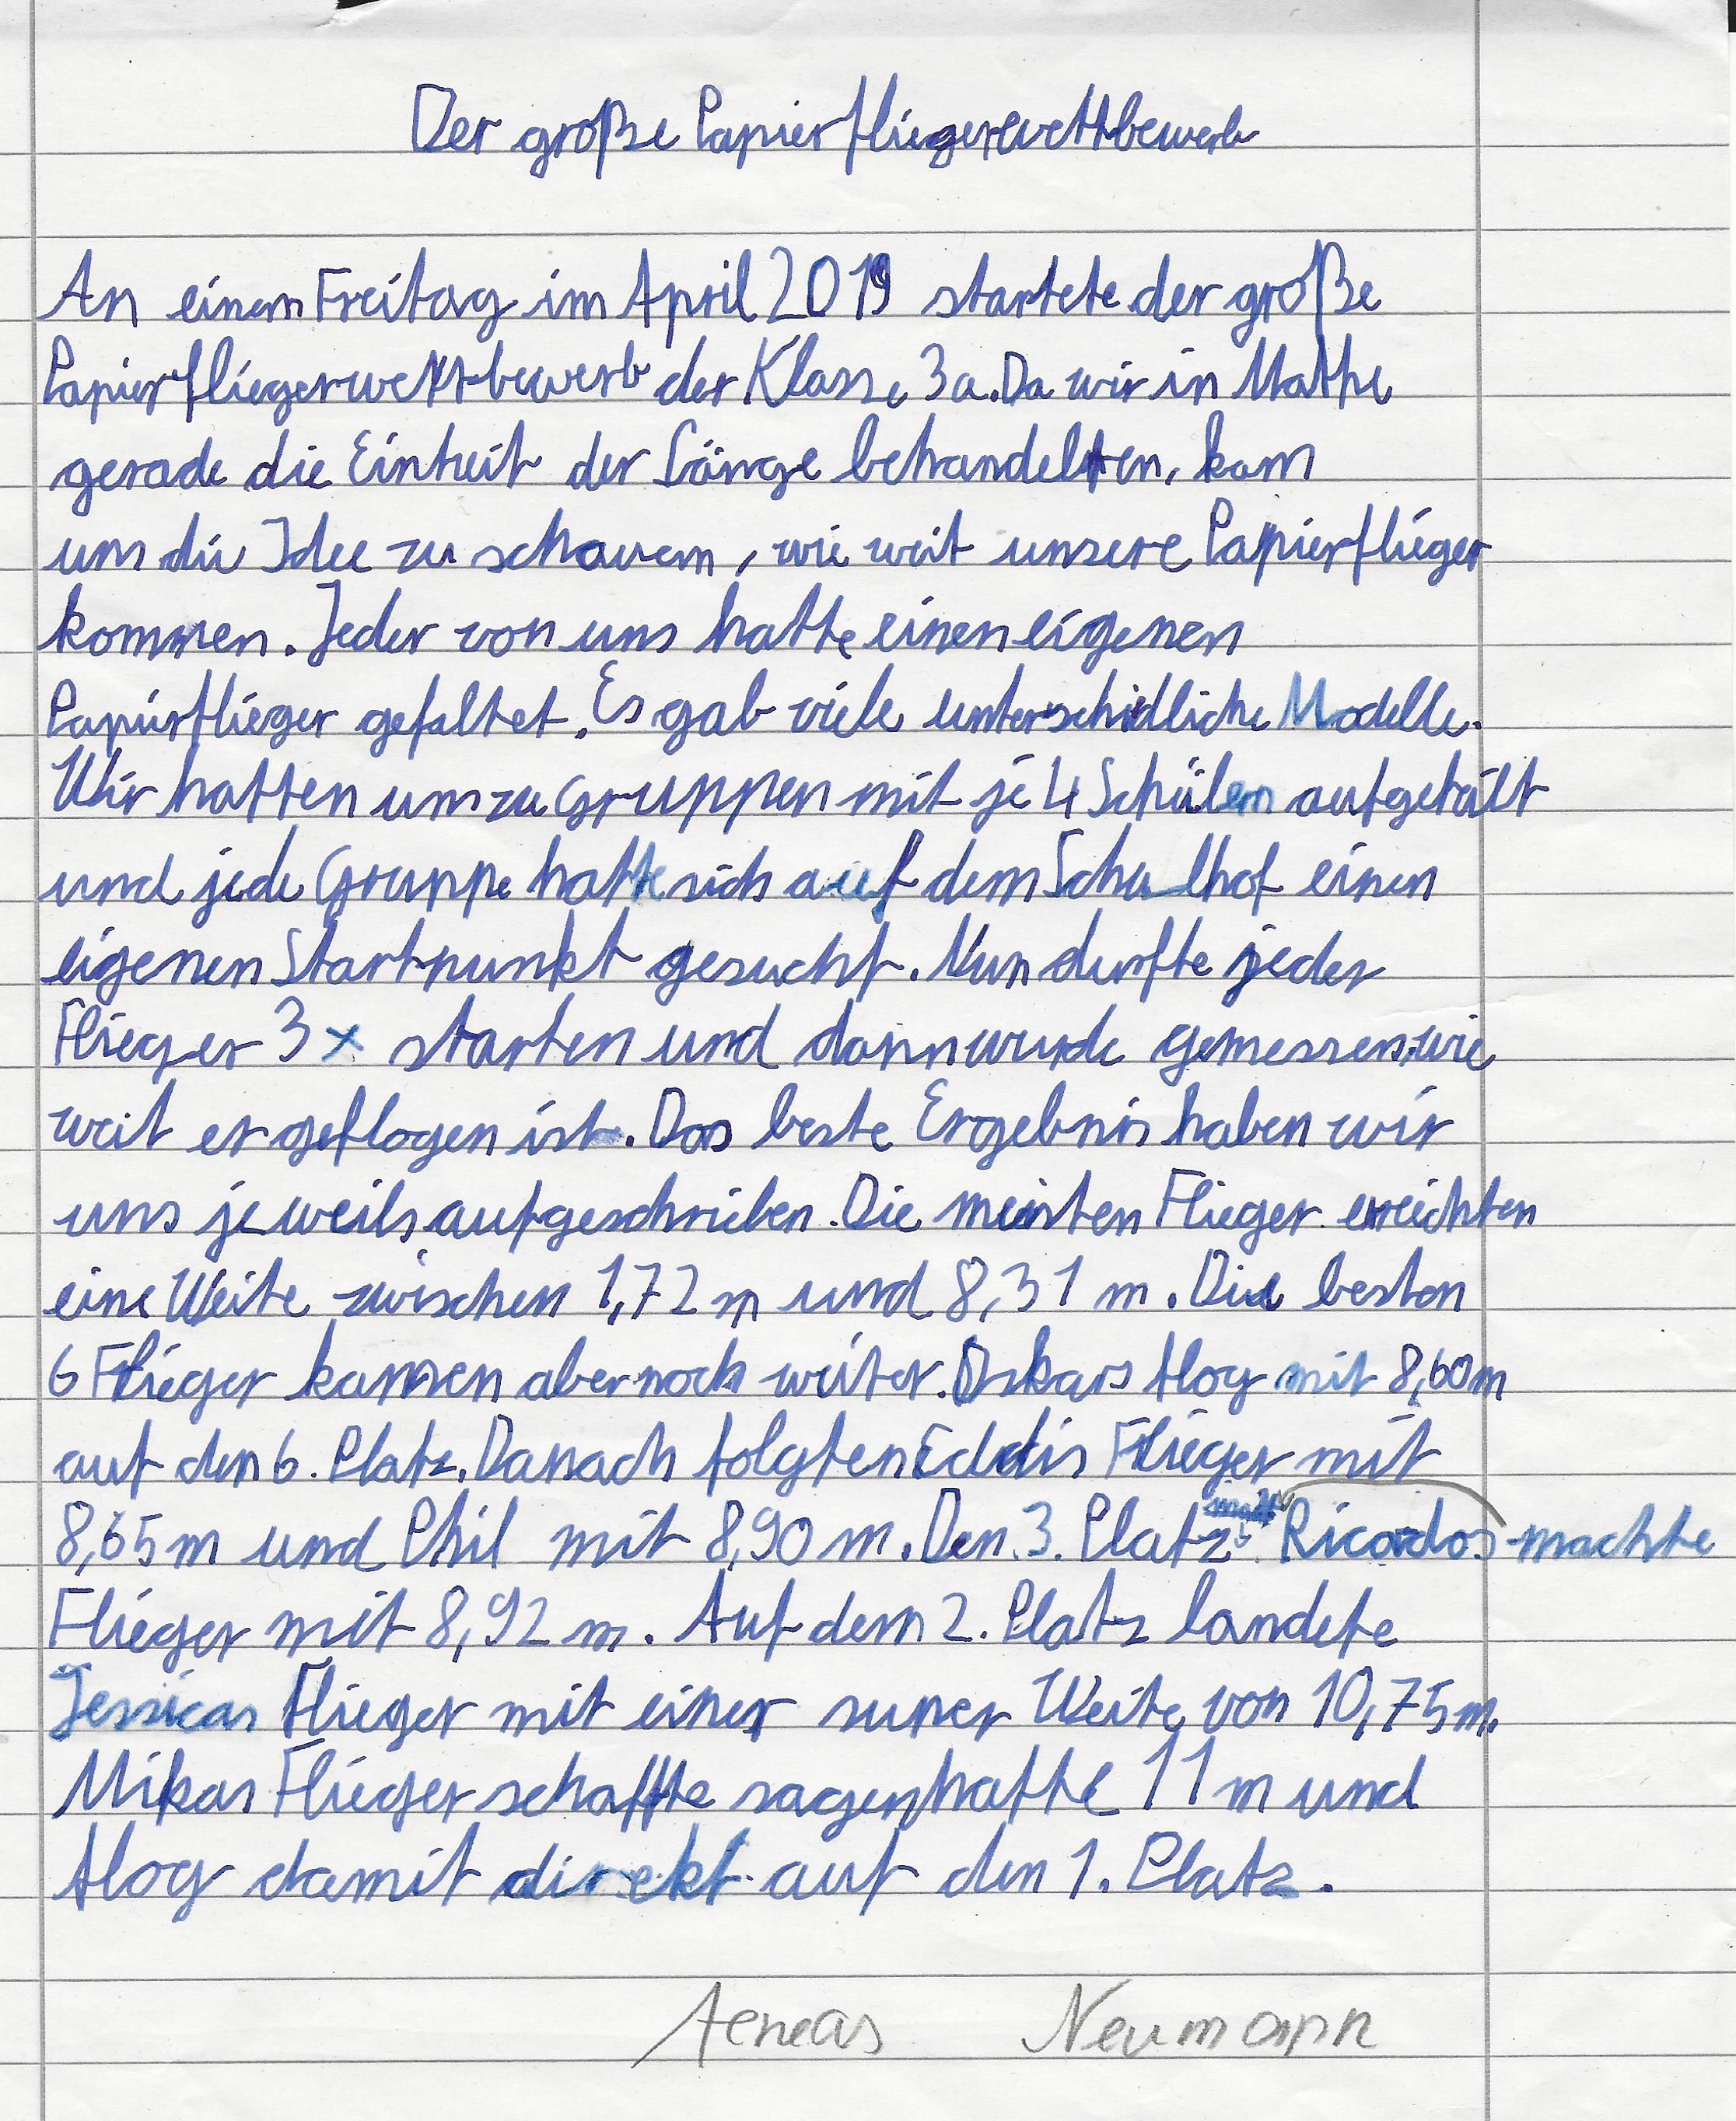 Der große Papierfliegerwettbewerb
An einem Freitag im April 2019 startete der große
Papierfliegerwettbewerb der Klasse 3a. Da wir in Mathe
gerade die Einheit der Länge behandelten, kam
uns die Idee zu schauen, wie weit unsere Papierflieger
kommen. Jeder von uns hatte einen eigenen
Papierflieger gefaltet. Es gab viele unterschiedliche Modelle.
Wir hatten uns zu Gruppen mit je 4 Schülern aufgeteilt
und jede Gruppe hatte sich auf dem Schulhof einen
eigenen Startpunkt gesucht. Nun durfte jeder
Flieger 3x starten und dann wurde gemessen, wie
weit er geflogen ist. Das beste Ergebnis haben wir
uns jeweils aufgeschrieben. Die meisten Flieger erreichten
eine Weite zwischen 1,72 m und 8,31 m. Die besten
6 Flieger kamen aber noch weiter. Oskars flog mit 8,60m
auf den 6. Platz. Danach folgten Eddis Flieger mit
8,65m und Phil mit 8,90 m. Den 3. Platz Ricardos machte
Flieger mit 8,92 m. Auf dem 2. Platz landete
Jessicas Flieger mit einer super Weite von 10,75m.
Mikas Flieger schaffte sagenhafte 11 m und
flog damit direkt auf den 1. Platz.
Aeneas Neumann